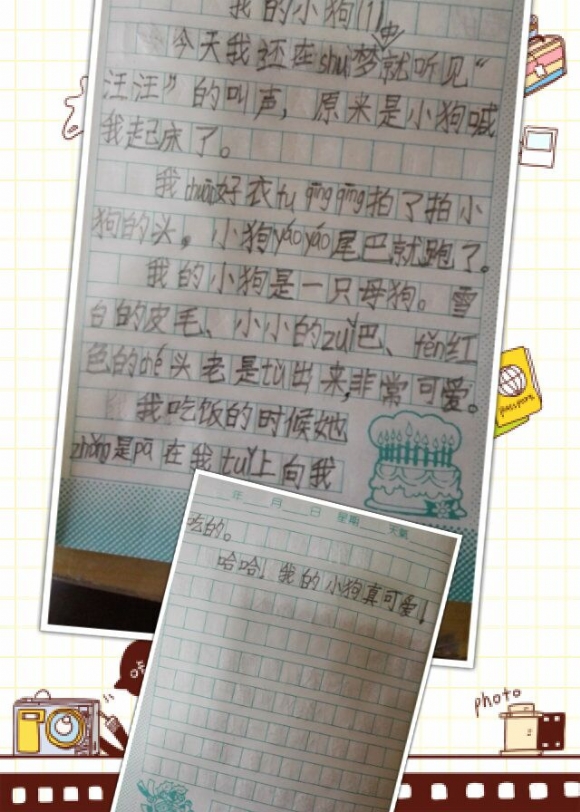 我的小狗(1)
今天我还在shuì梦中就听见“
汪汪”的叫声，原来是小狗喊
我起床了。
我chuān好衣fu qīng qīng拍了拍小
狗的头。小狗yáo yáo尾巴就跑了。
我的小狗是一只母狗。雪
白的皮毛、小小的zuǐ巴、fěn红
色的shé头老是tǔ出来,非常可爱。
我吃饭的时候她
zhǒng是pā在我tuǐ上向我
年 月 日 星期 天氣
吃的。
哈哈！我的小狗真可爱！
photo
passport